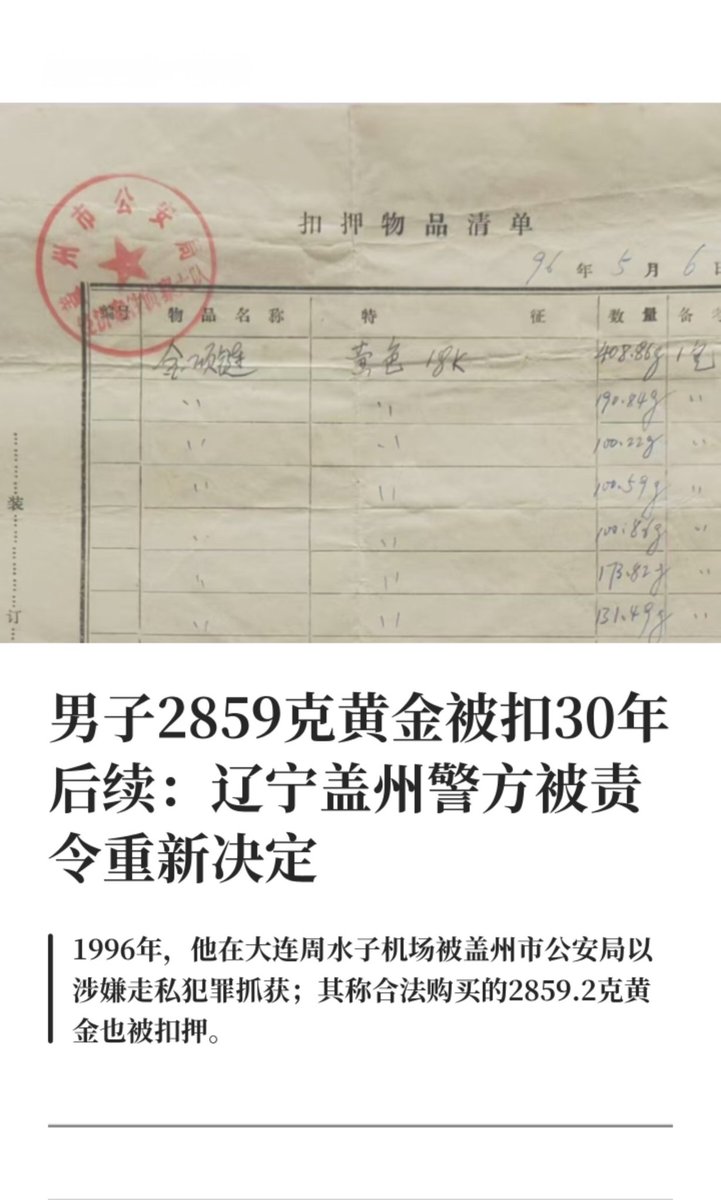 扣押物品清单
96年5月6日
盖州市公安局
编号 物品名称 特征 数量 备考
金项链 黄色 18K 408.86g 1包
〃 〃 190.84g 〃
〃 〃 100.22g 〃
〃 〃 100.59g 〃
〃 〃 100.86g 〃
〃 〃 173.82g 〃
〃 〃 131.49g 〃
装
订
男子2859克黄金被扣30年
后续：辽宁盖州警方被责
令重新决定
1996年，他在大连周水子机场被盖州市公安局以
涉嫌走私犯罪抓获；其称合法购买的2859.2克黄
金也被扣押。